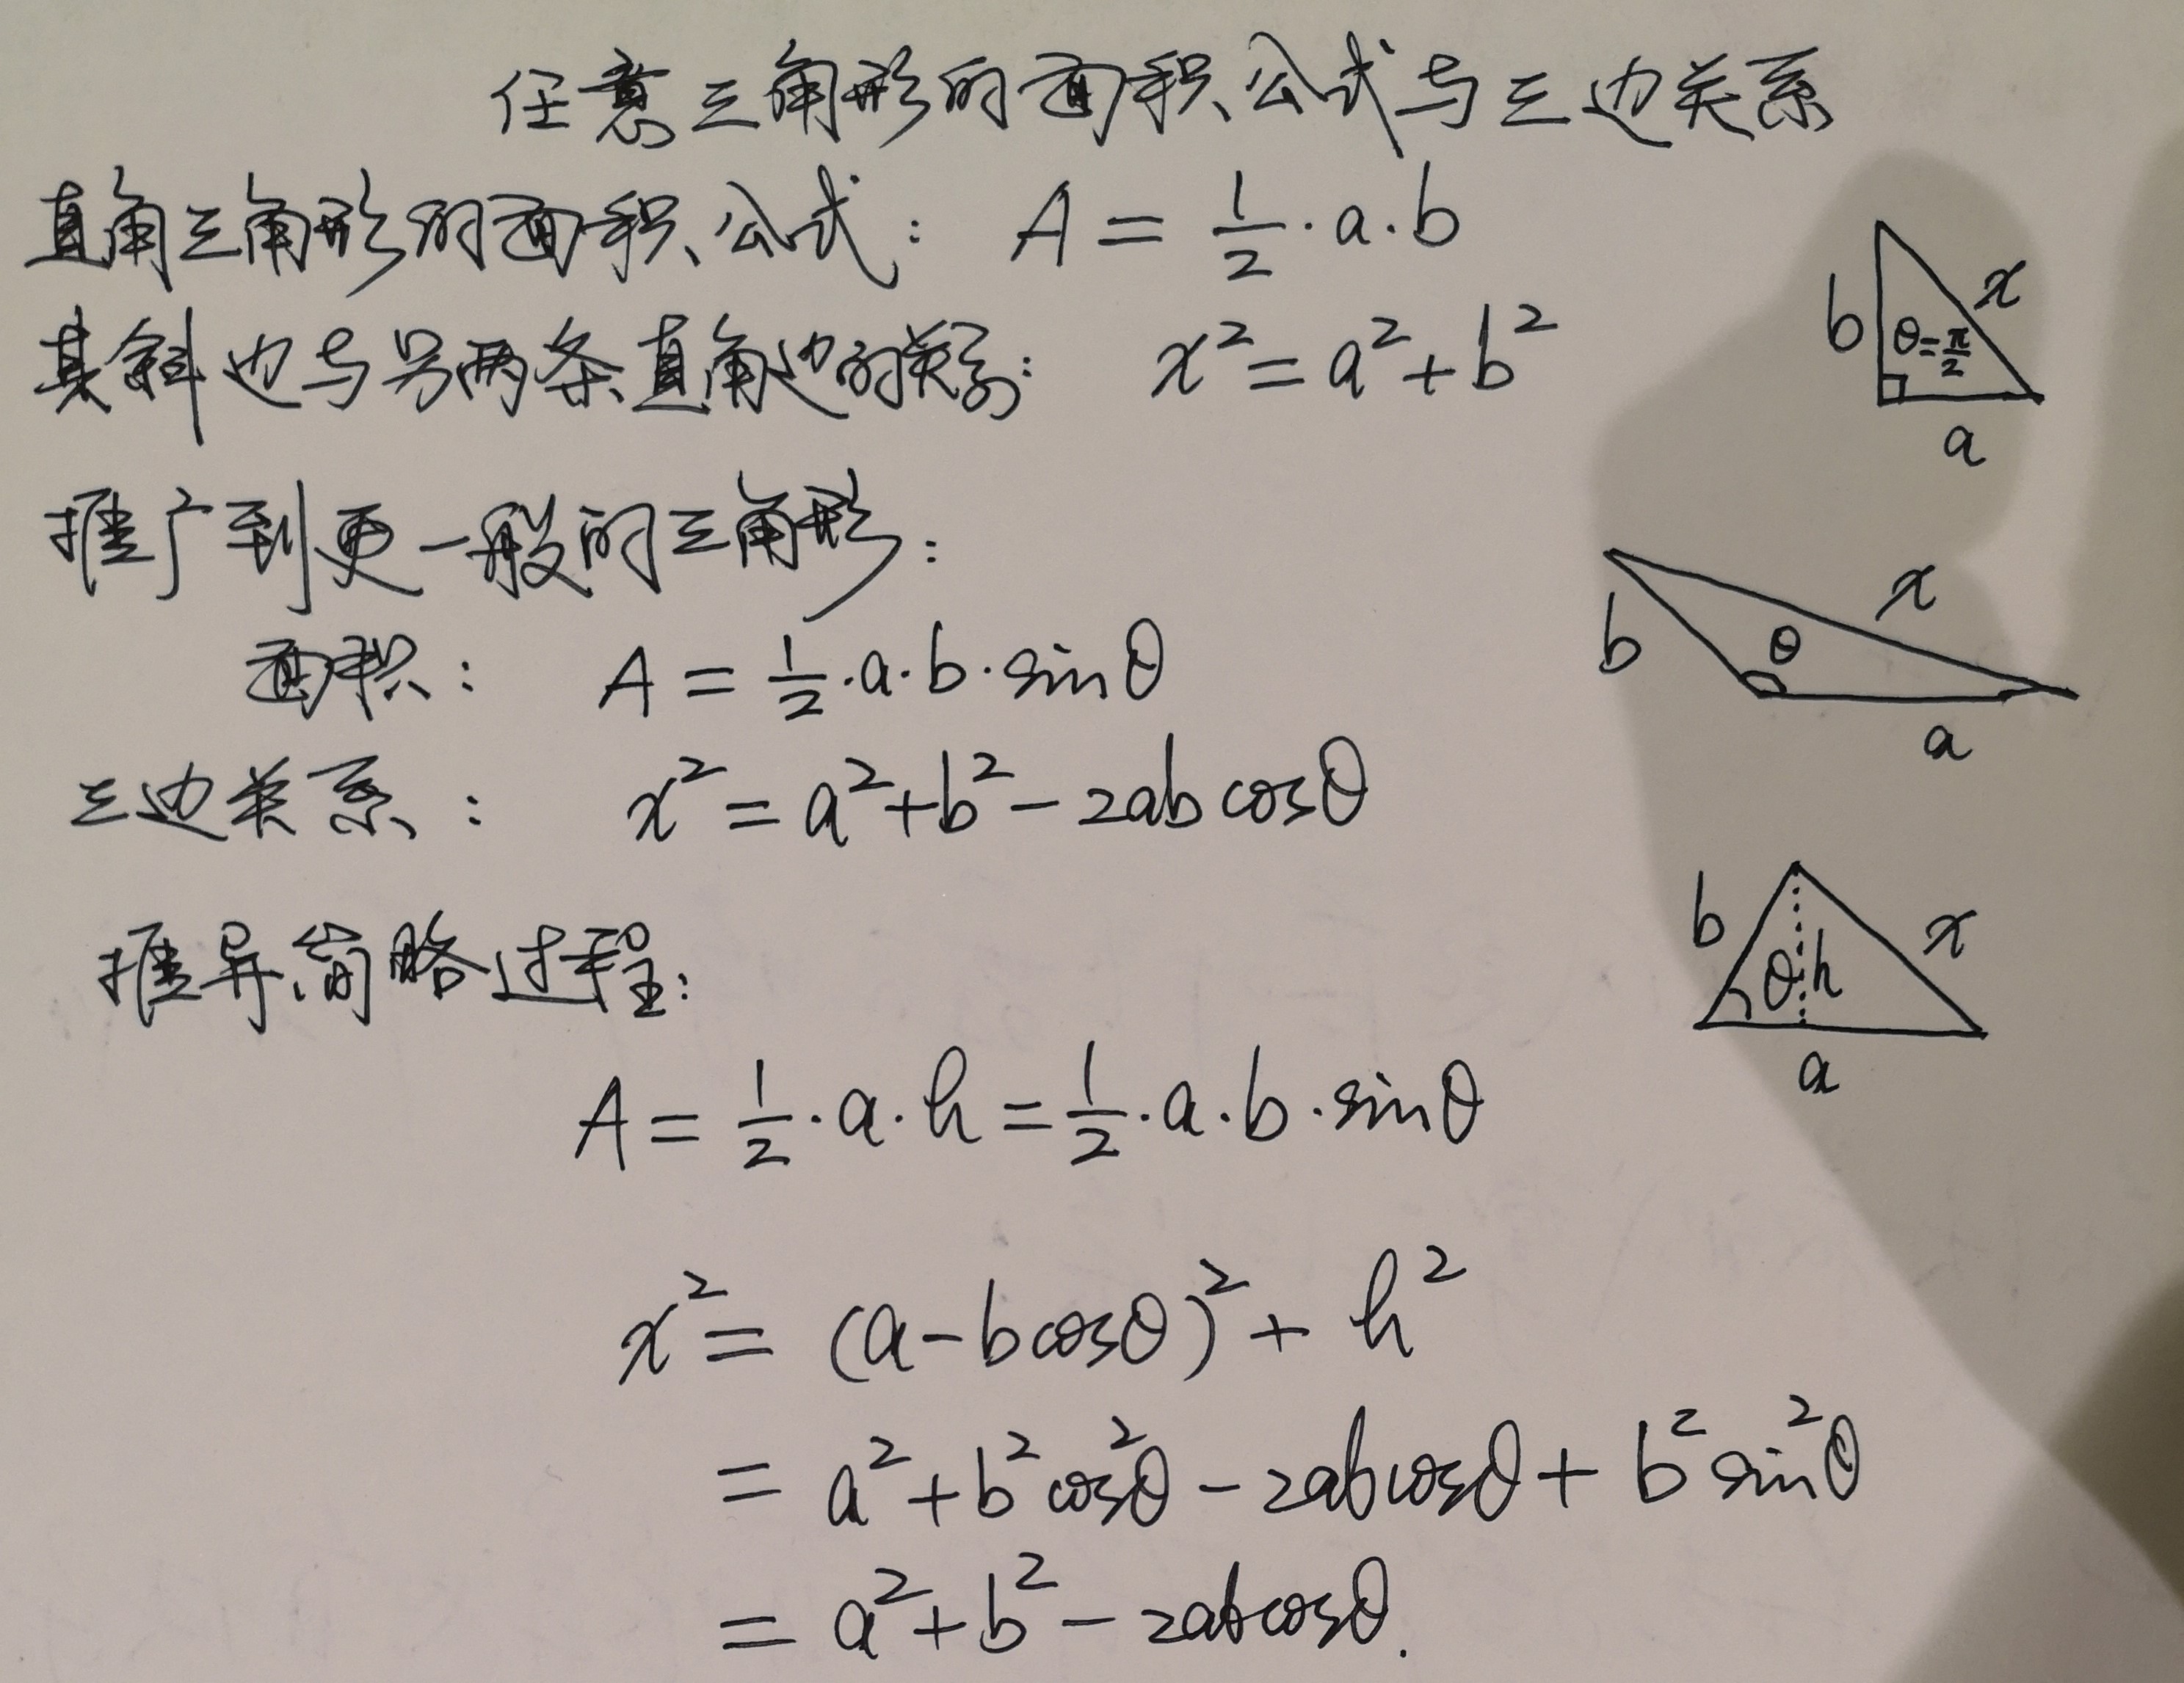 任意三角形的面积公式与三边关系
直角三角形的面积公式: A = 1/2 · a · b
其斜边与另两条直角边的关系: x² = a² + b²
b x θ=π/2 a
推广到更一般的三角形:
面积: A = 1/2 · a · b · sinθ
b x θ a
三边关系: x² = a² + b² - 2ab cosθ
推导简略过程:
b x θ h a
A = 1/2 · a · h = 1/2 · a · b · sinθ
x² = (a - b cosθ)² + h²
= a² + b² cos²θ - 2ab cosθ + b² sin²θ
= a² + b² - 2ab cosθ.